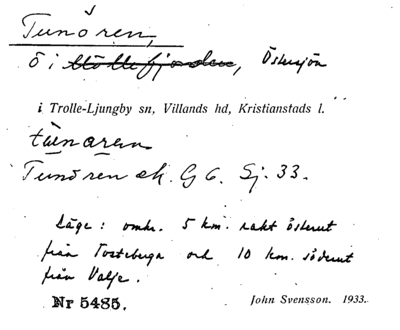 Tunören,
ö i Östersjön
i Trolle-Ljungby sn, Villands hd, Kristianstads l.
Tunören ek. G 6. Sj. 33.
Läge: omkr. 5 km. rakt österut
från Tosteberga och 10 km. söderut
från Valje.
Nr 5485. John Svensson. 1933.